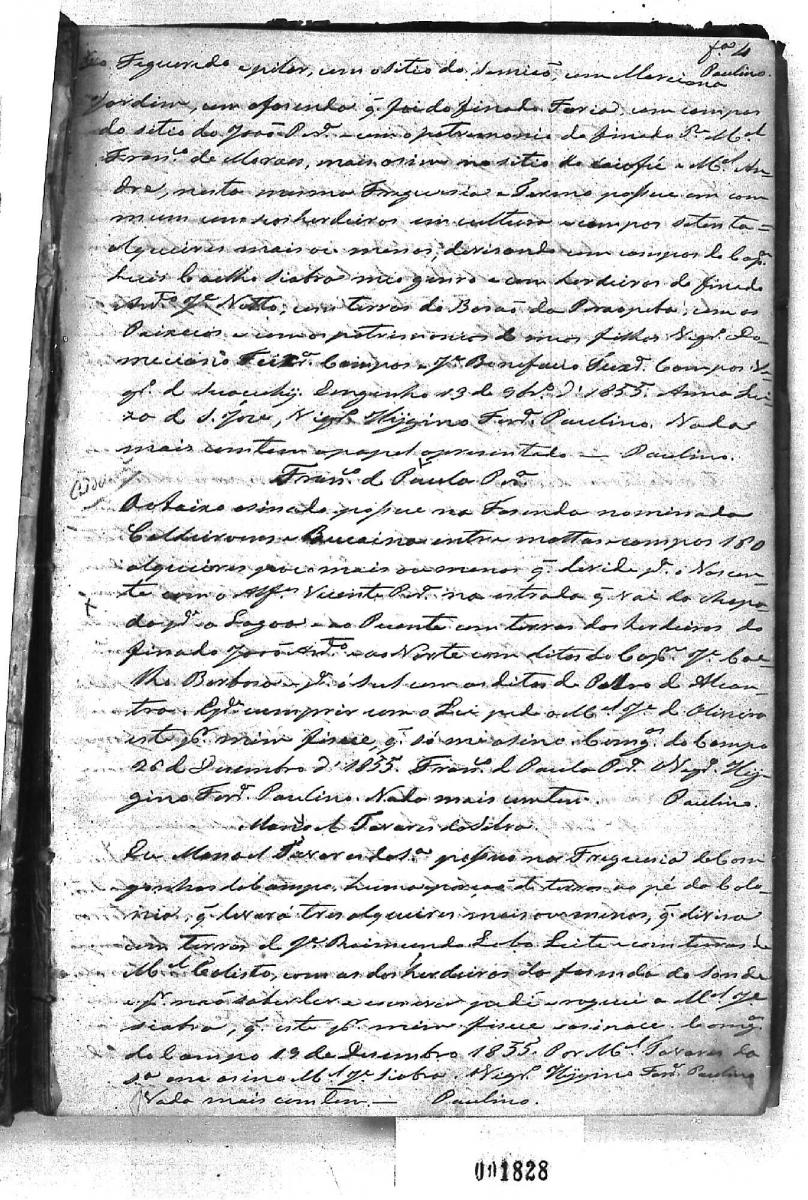 fª 4
Paulino.
Figueredo e pilar, com o sitio do com Marciana
Jardim, com a fasenda q̃ foi do finado Faria, com campos
do sitio do João Per.ª e com o patrimonio do finado P.e M.el
Fran.co de Moraes, mais osim no sitio do e M.el An-
dre, nesta mesma Freguesia e Termo posue em com
mum com seos herdeiros em cultura e campos setenta=
alqueires mais ou menos, devisando com campos do Cap.m
Luis Coelho Siabra meo genro e com herdeiros do finado
Ant.º J.e Netto, com terras do Barão da Paraopeba, com os
e com os patrimonios de meos filhos Vigr.º Do
meciano Teix.ª Campos e J.e Bonefacio Teix.ª Campos V-
gr.º d Engenho 13 de 9br.º d' 1855. Anna Lui-
za d S. Joze, Vigr.º Higgino Ferr.ª Paulino. Nada
mais contem o papel apresentado — Paulino.
Fran.co d Paula Per.ª
O abaixo asinado posue na Fasenda nominada
Caldeiroens e Bucaina entre mattas e campos 180
alqueires pouco mais ou menos q̃ devide p.r o Nascen-
te com o Alf.es Vicente Per.ª na estrada q̃ vai do Chapa
da p.ª a Lagoa e ao Puente com terras dos herdeiros do
finado João Ant.º e ao Norte com ditos do Cap.m J.e Coe-
lho Barbosa e p.r o Sul com as ditas de Pedro de Alcan-
tra. E p.ª cumprir com o Lei pedi a M.el J.e d Oliveira
este p.r mim fisese, q̃ só me asino. Cong.as do Campo
26 d Desembro d' 1855. Fran.co d Paula Per.ª Vigr.º Hig-
gino Ferr.ª Paulino. Nada mais contem. Paulino.
Manoel Tavares da Silva.
Eu Manoel Tavares da S.ª posuo na Freguesia de Con
gonhas do Campo, huma porção d terras ao pé da Colo
nia, q̃ levará tres alqueires mais ou menos, q̃ divisa
com terras d J.e Raimundo Lobo Leite e com terras de
M.el Calisto, com as dos herdeiros da fasenda do
e p.r não saber ler e escrever pedi e roguei a M.el J.e
Siabra, q̃ este p.r mim fisese e asinace. Cong.as
do Campo 19 de Desembro 1855. Por M.el Tavares da
S.ª me asino M.el J.e Siabra. Vigr.º Higgino Ferr.ª Paulino
Nada mais contem. — Paulino.
001828